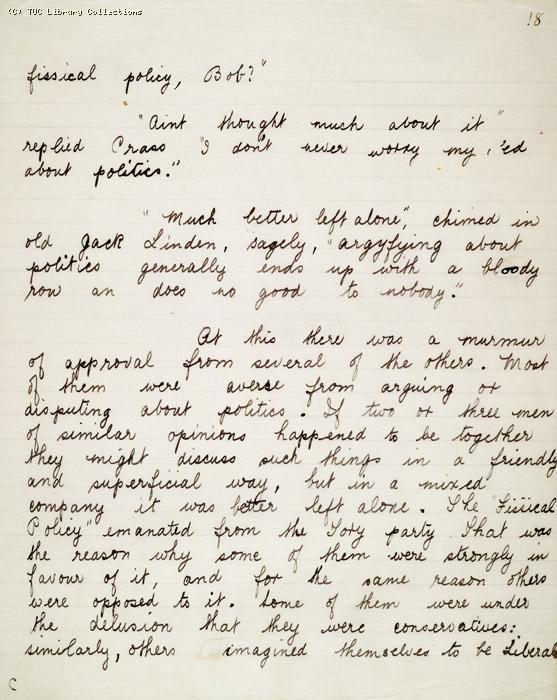 (C) TUC Library Collections
18
fissical policy, Bob?"
"Aint thought much about it"
replied Crass "I don't never worry my 'ed
about politics."
"Much better left alone", chimed in
old Jack Linden, sagely, "argyfying about
politics generally ends up with a bloody
row an does no good to nobody."
At this there was a murmur
of approval from several of the others. Most
of them were averse from arguing or
disputing about politics. If two or three men
of similar opinions happened to be together
they might discuss such things in a friendly
and superficial way, but in a mixed
company it was better left alone. The "Fissical
Policy" emanated from the Tory party. That was
the reason why some of them were strongly in
favour of it, and for the same reason others
were opposed to it. Some of them were under
the delusion that they were conservatives:
similarly, others imagined themselves to be Liberal
C